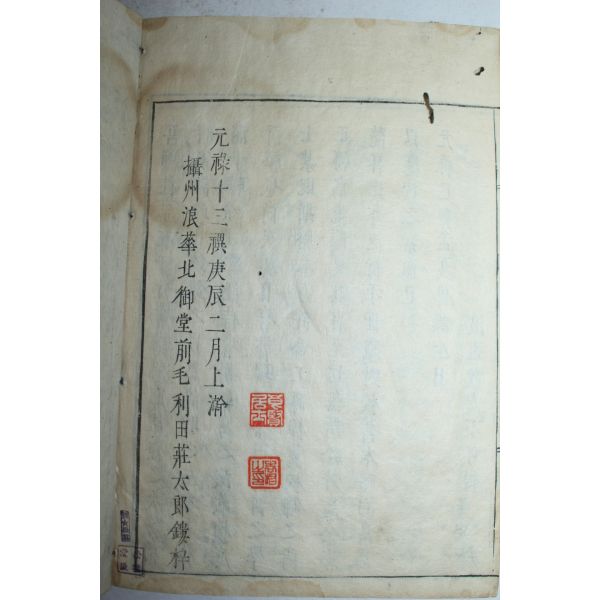 元祿十三禩庚辰二月上澣
攝州浪華北御堂前毛利田莊太郎鏤梓